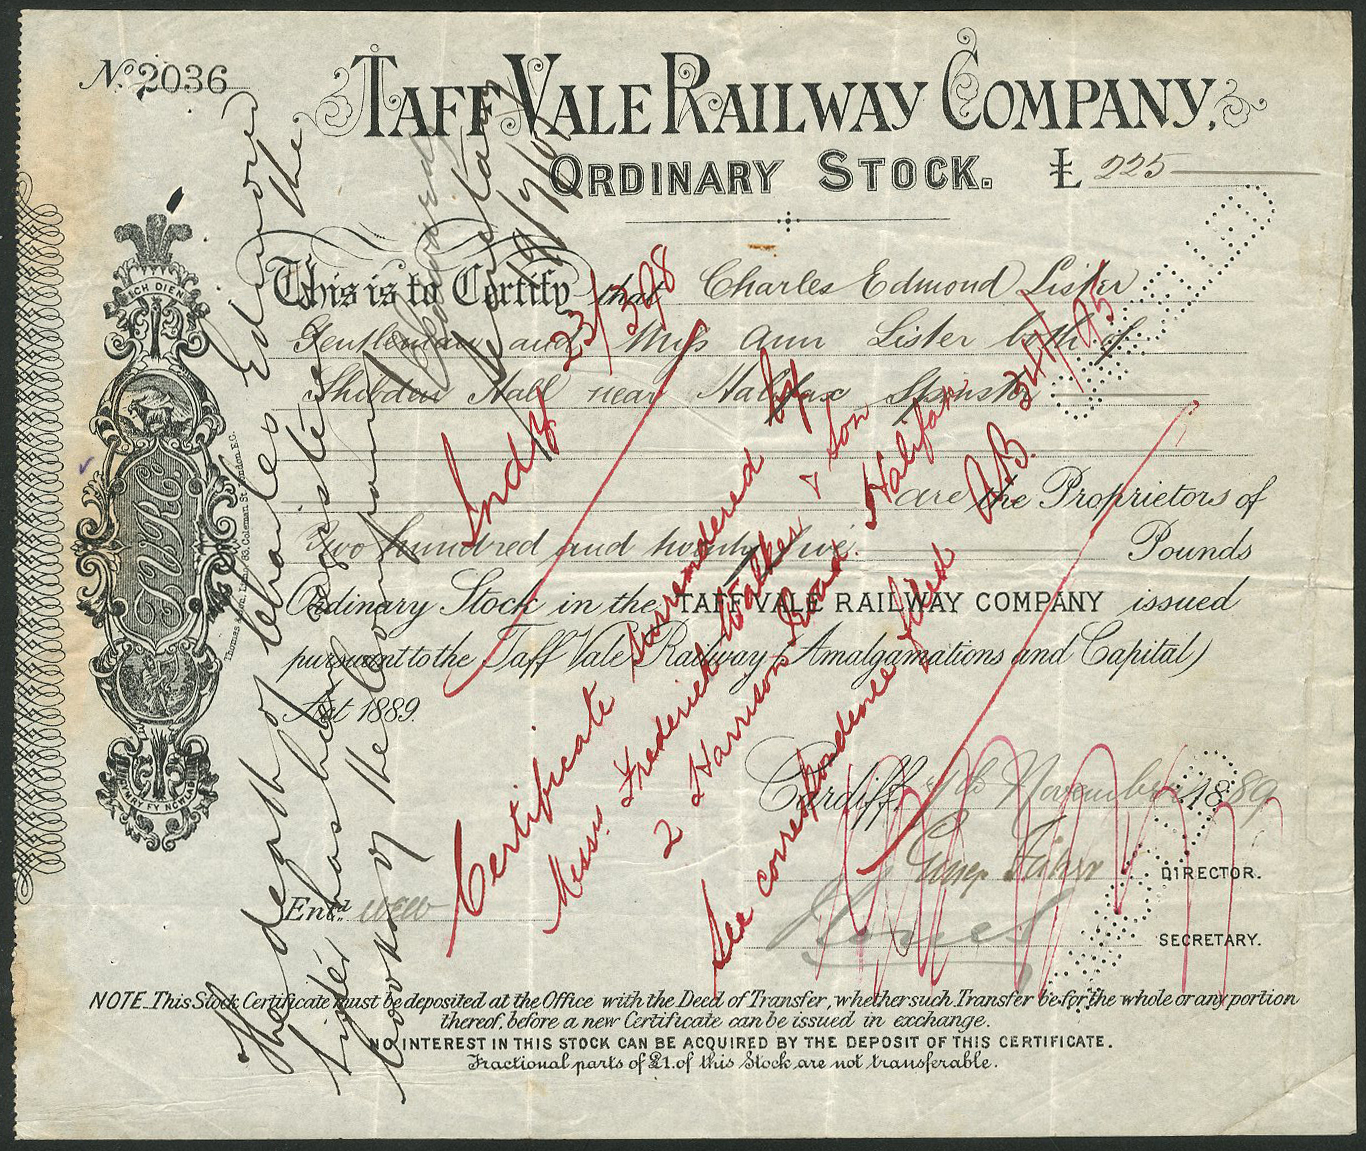 No. 2036
TAFF VALE RAILWAY COMPANY,
ORDINARY STOCK. £ 225
This is to Certify that Charles Edmond Lister
Gentleman and Miss Ann Lister both of
Shibden Hall near Halifax Spinster
are the Proprietors of
Two hundred and twenty five Pounds
Ordinary Stock in the TAFF VALE RAILWAY COMPANY issued
pursuant to the Taff Vale Railway (Amalgamations and Capital)
Act 1889.
Cardiff, November 1889
DIRECTOR.
Entd.
SECRETARY.
NOTE. This Stock Certificate must be deposited at the Office with the Deed of Transfer, whether such Transfer be for the whole or any portion
thereof, before a new Certificate can be issued in exchange.
NO INTEREST IN THIS STOCK CAN BE ACQUIRED BY THE DEPOSIT OF THIS CERTIFICATE.
Fractional parts of £1. of this Stock are not transferable.
ICH DIEN
TVRC
CYMRY FY NGWLAD
63, Coleman St. London. E.C.
The death of Charles Edmond
Lister has been registered in the
books of the Company
Edwards
Secretary
19/9/
Certificate surrendered by
Messrs. Frederick Walker & Son
2 Harrisons Road Halifax
See correspondence filed A.B.
Ind 23/398